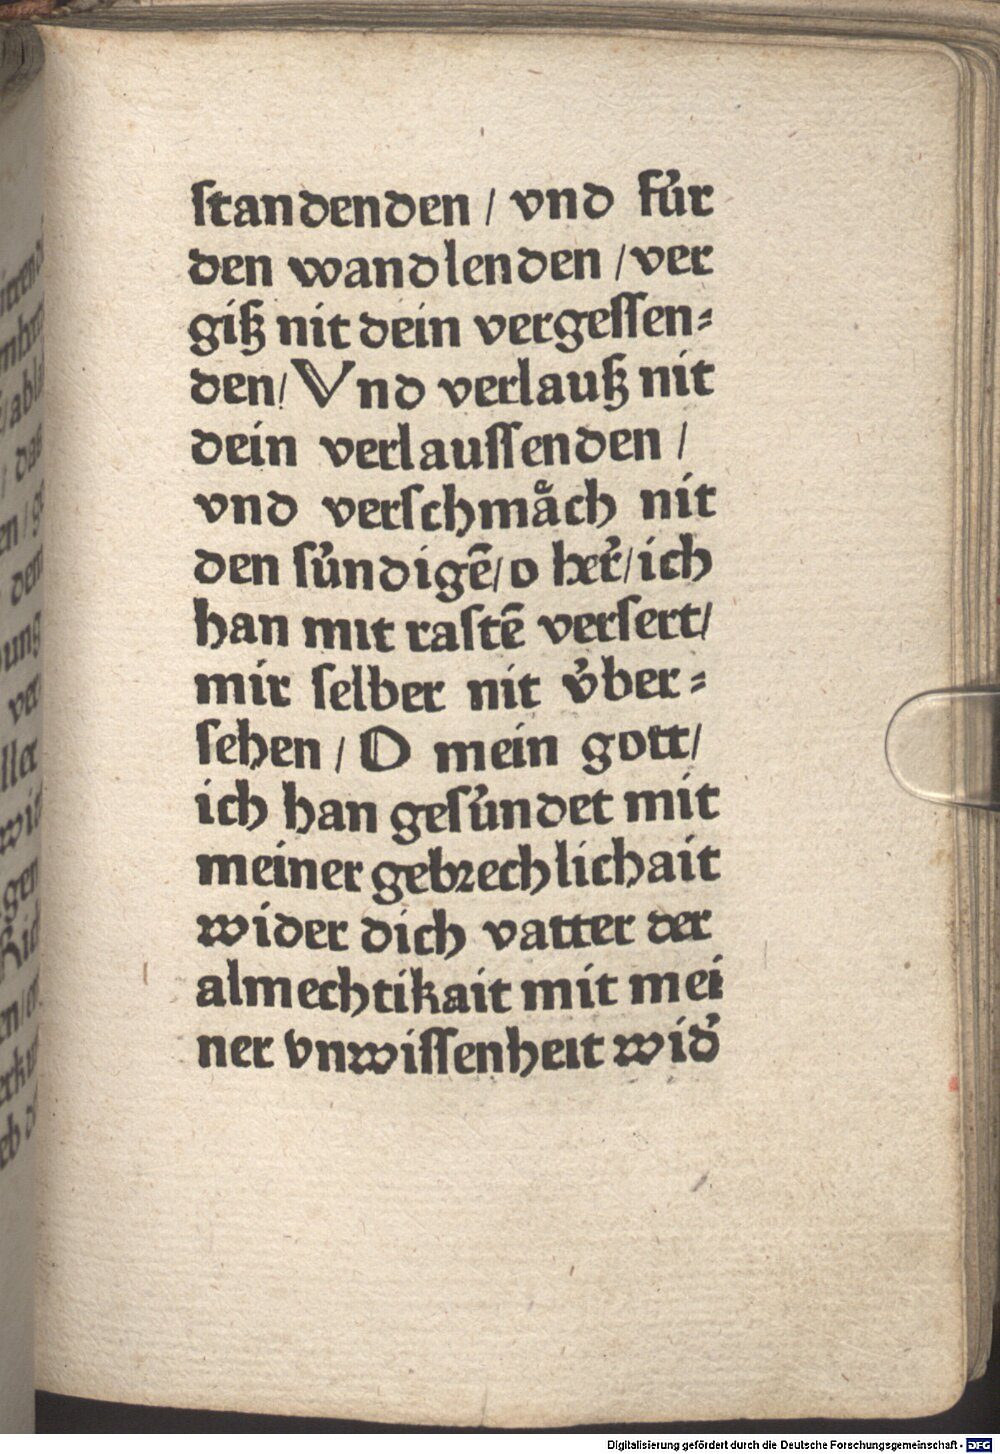 ſtandenden / vnd fúr
den wandlenden / ver
giß nit dein vergeſſen⸗
den / Vnd verlauß nit
dein verlauſſenden /
vnd verſchmaͤch nit
den ſúndigē / o her̕ / ich
han mit raſtē verſert /
mir ſelber nit v́ber⸗
ſehen / O mein gott /
ich han geſúndet mit
meiner gebꝛechlichait
wider dich vatter der
almechtikait mit mei
ner vnwiſſenheit wid̕
Digitalisierung gefördert durch die Deutsche Forschungsgemeinschaft - DFG